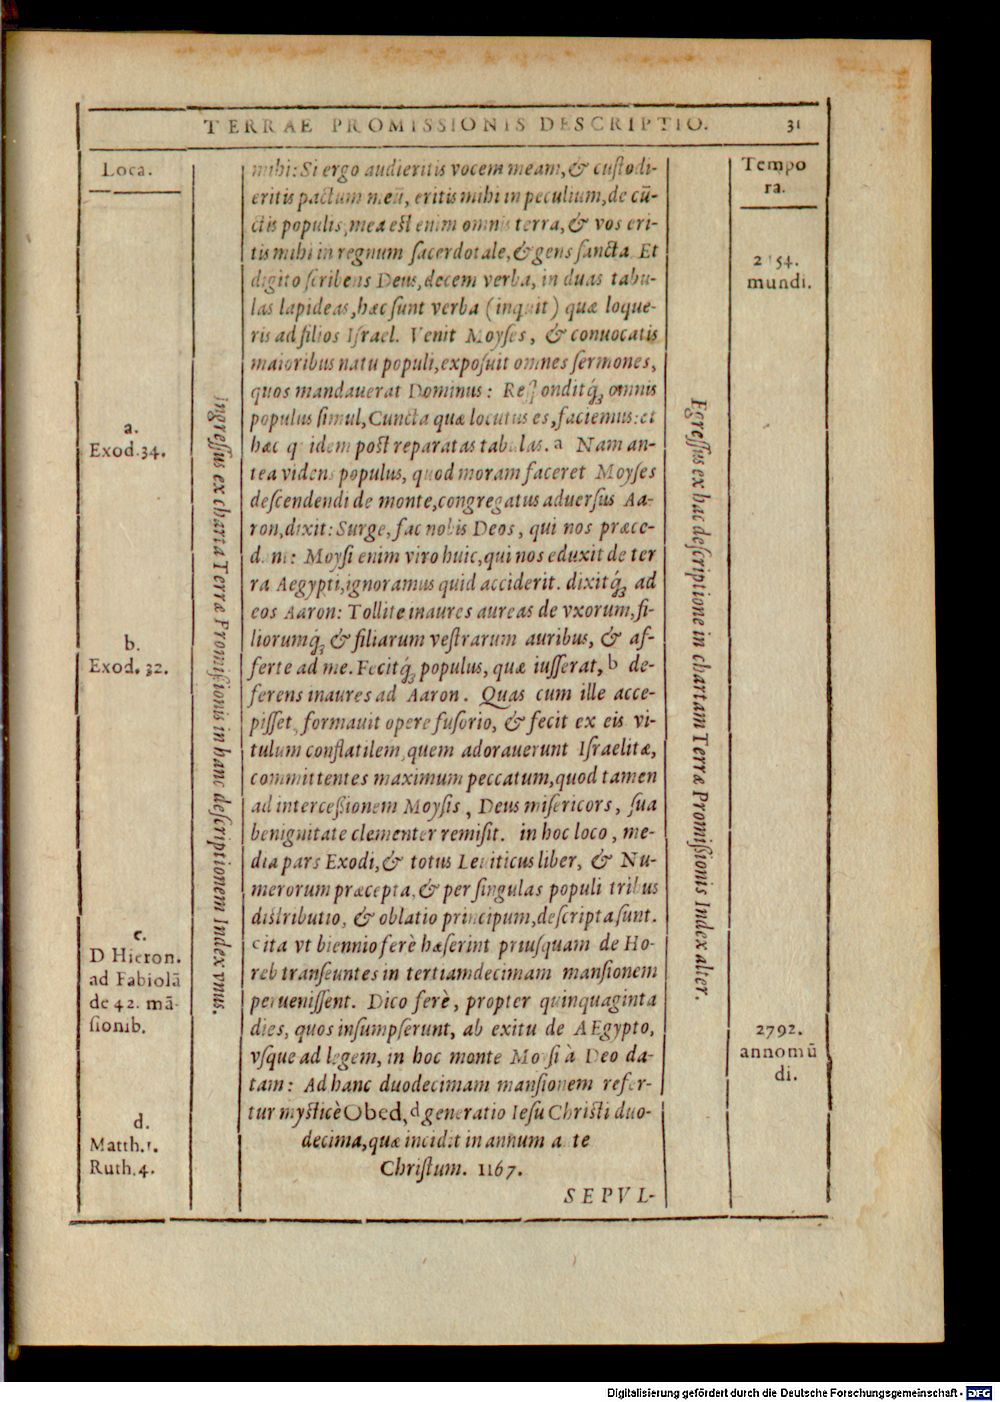 TERRAE PROMISSIONIS DESCRIPTIO. 31
Loca.
a.
Exod.34.
b.
Exod. 32.
c.
D Hieron.
ad Fabiolā
de 42. mā-
sionib.
d.
Matth.1.
Ruth.4.
Ingressus ex charta Terræ Promissionis in hanc descriptionem Index vnus.
mihi: Si ergo audieritis vocem meam, & custodi-
eritis pactum meū, eritis mihi in peculium, de cū-
ctis populis, mea est enim omnis terra, & vos eri-
tis mihi in regnum sacerdotale, & gens sancta Et
digito scribens Deus, decem verba, in duas tabu-
las lapideas, hæc sunt verba (inquit) quæ loque-
ris ad filios Israel. Venit Moyses, & conuocatis
maioribus natu populi, exposuit omnes sermones,
quos mandauerat Dominus: Responditq́; omnis
populus simul, Cuncta quæ locutus es, faciemus: et
hæc quidem post reparatas tabulas. a Nam an-
tea videns populus, quod moram faceret Moyses
descendendi de monte, congregatus aduersus Aa-
ron, dixit: Surge, fac nobis Deos, qui nos præce-
dant: Moysi enim viro huic, qui nos eduxit de ter
ra Aegypti, ignoramus quid acciderit. dixitq́; ad
eos Aaron: Tollite inaures aureas de vxorum, fi-
liorumq́; & filiarum vestrarum auribus, & af-
ferte ad me. Fecitq́; populus, quæ iusserat, b de-
ferens inaures ad Aaron. Quas cum ille acce-
pisset, formauit opere fusorio, & fecit ex eis vi-
tulum conflatilem, quem adorauerunt Israelitæ,
committentes maximum peccatum, quod tamen
ad intercessionem Moysis, Deus misericors, sua
benignitate clementer remisit. in hoc loco, me-
dia pars Exodi, & totus Leuiticus liber, & Nu-
merorum præcepta, & per singulas populi tribus
distributio, & oblatio principum, descripta sunt.
c ita vt biennio ferè hæserint priusquam de Ho-
reb transeuntes in tertiamdecimam mansionem
peruenissent. Dico ferè, propter quinquaginta
dies, quos insumpserunt, ab exitu de AEgypto,
vsque ad legem, in hoc monte Moysi à Deo da-
tam: Ad hanc duodecimam mansionem refer-
tur mysticè Obed, d generatio Iesu Christi duo-
decima, quæ incidit in annum ante
Christum. 1167.
SEPVL-
Egressus ex hac descriptione in chartam Terræ Promissionis Index alter.
Tempo
ra.
2 54.
mundi.
2792.
anno mū
di.
Digitalisierung gefördert durch die Deutsche Forschungsgemeinschaft - DFG